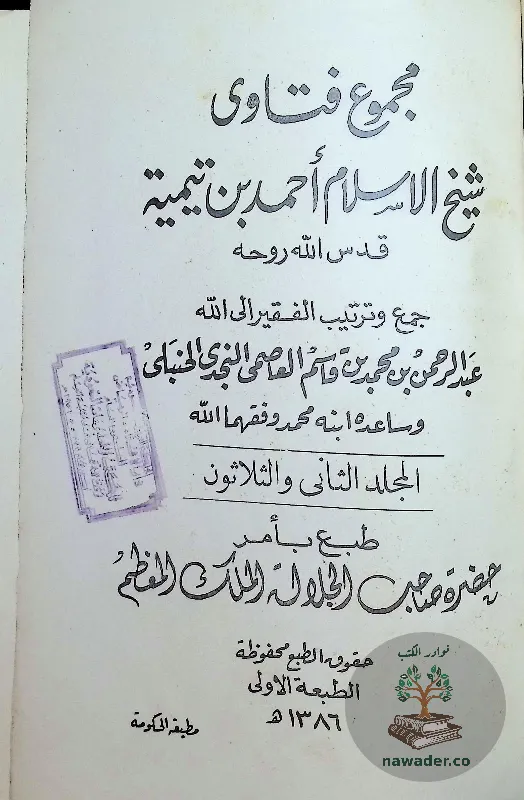 مجموع فتاوى
شيخ الاسلام أحمد بن تيمية
قدس الله روحه
جمع وترتيب الفقير الى الله
عبد الرحمن بن محمد بن قاسم العاصمى النجدى الحنبلى
وساعده ابنه محمد وفقهما الله
المجلد الثانى والثلاثون
طبع بأمر
حضرة صاحب الجلالة الملك المعظم
حقوق الطبع محفوظة
الطبعة الاولى
١٣٨٦ هـ
مطبعة الحكومة
نوادر الكتب
nawader.co